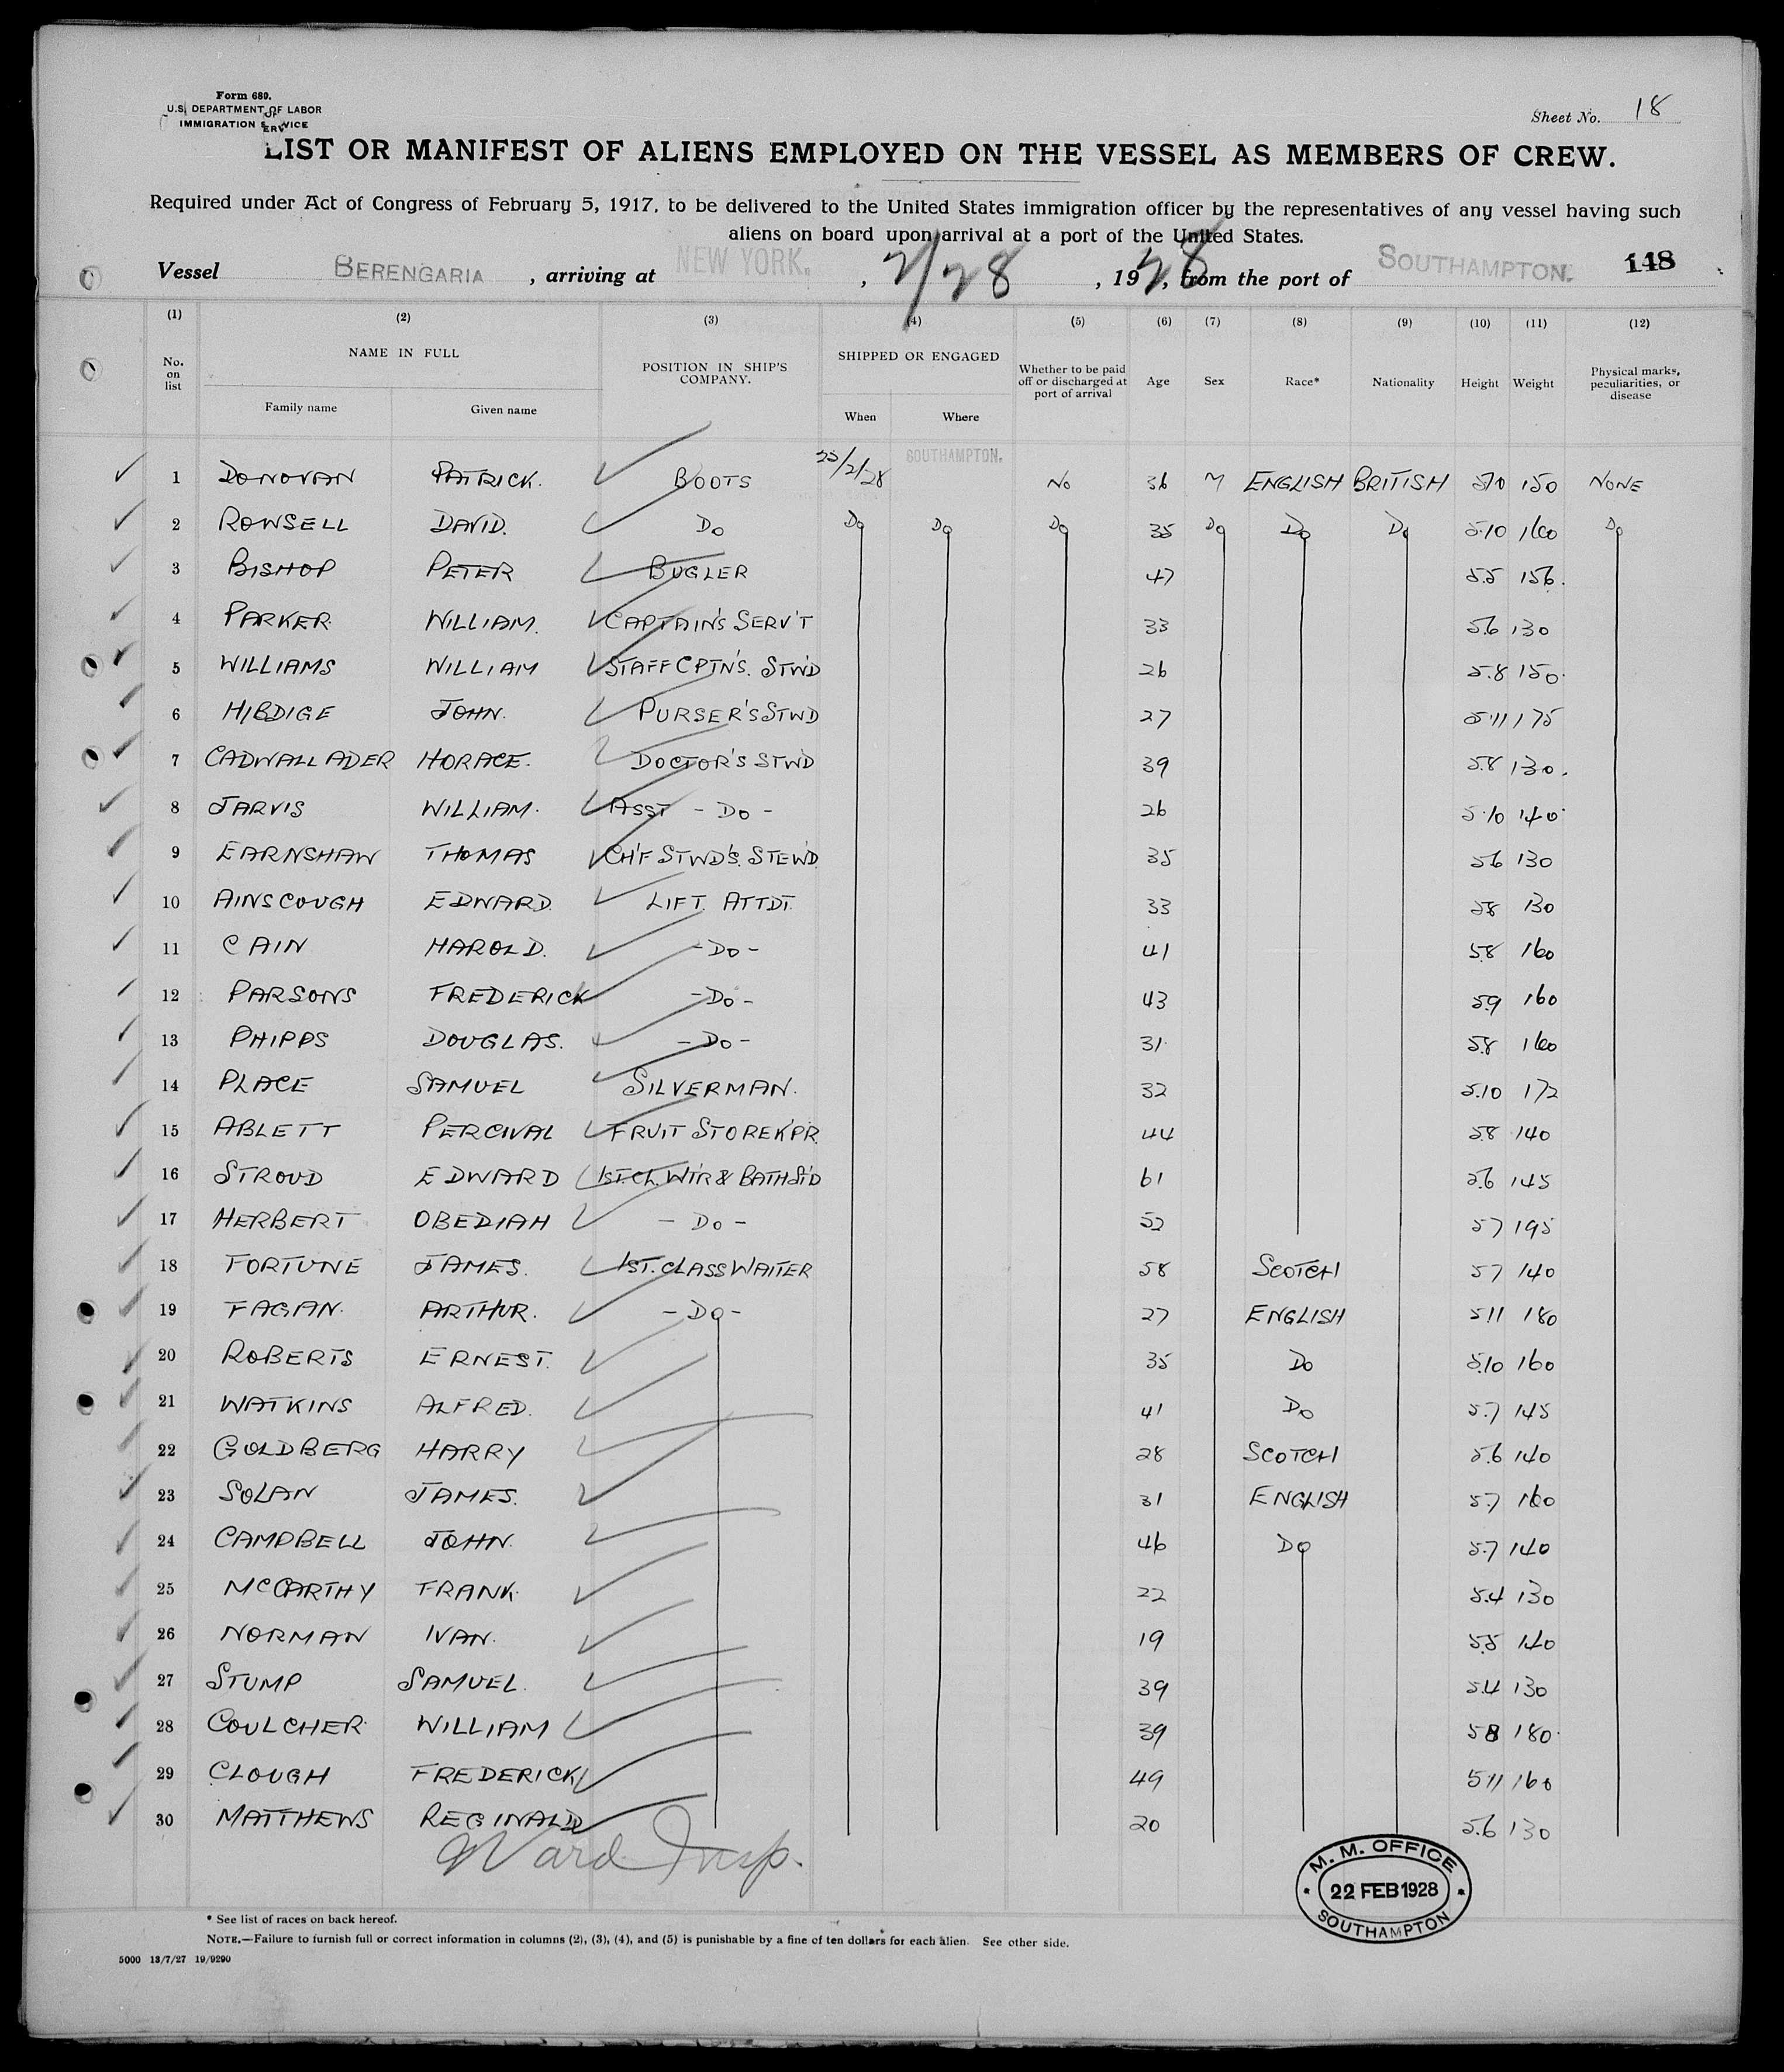 Form 680.
U.S. DEPARTMENT OF LABOR
IMMIGRATION SERVICE
Sheet No. 18
LIST OR MANIFEST OF ALIENS EMPLOYED ON THE VESSEL AS MEMBERS OF CREW.
Required under Act of Congress of February 5, 1917, to be delivered to the United States immigration officer by the representatives of any vessel having such
aliens on board upon arrival at a port of the United States.
Vessel BERENGARIA, arriving at NEW YORK., 2/28, 1928, from the port of SOUTHAMPTON. 148
(1) (2) (3) (4) (5) (6) (7) (8) (9) (10) (11) (12)
No. on list NAME IN FULL POSITION IN SHIP'S COMPANY. SHIPPED OR ENGAGED Whether to be paid off or discharged at port of arrival Age Sex Race* Nationality Height Weight Physical marks, peculiarities, or disease
Family name Given name When Where
1 DONOVAN PATRICK. BOOTS 23/2/28 SOUTHAMPTON. NO 36 M ENGLISH BRITISH 5.10 150 NONE
2 ROWSELL DAVID. DO DO DO DO 35 DO DO DO 5.10 160 DO
3 BISHOP PETER BUGLER 47 5.5 156.
4 PARKER. WILLIAM. CAPTAIN'S SERV'T 33 5.6 130
5 WILLIAMS WILLIAM STAFF CPTN'S. STW'D 26 5.8 150.
6 HIBDIGE JOHN. PURSER'S STWD 27 5.11 175
7 CADWALLADER HORACE. DOCTOR'S STWD 39 5.8 130.
8 JARVIS WILLIAM. ASST - DO - 26 5.10 140
9 EARNSHAW THOMAS CH'F STWD'S. STEW'D 35 5.6 130
10 AINSCOUGH EDWARD. LIFT. ATTDT. 33 5.8 130
11 CAIN HAROLD. - DO - 41 5.8 160
12 PARSONS FREDERICK - DO - 43 5.9 160
13 PHIPPS DOUGLAS. - DO - 31 5.8 160
14 PLACE SAMUEL SILVERMAN. 32 5.10 172
15 ABLETT PERCIVAL FRUIT STOREK'PR. 44 5.8 140
16 STROUD EDWARD 1ST.CL. WTR & BATH S'D 61 5.6 145
17 HERBERT OBEDIAH - DO - 52 5.7 195
18 FORTUNE JAMES. 1ST. CLASS WAITER 58 SCOTCH 5.7 140
19 FAGAN. ARTHUR. - DO - 27 ENGLISH 5.11 180
20 ROBERTS ERNEST. 35 DO 5.10 160
21 WATKINS ALFRED. 41 DO 5.7 145
22 GOLDBERG HARRY 28 SCOTCH 5.6 140
23 SOLAN JAMES. 31 ENGLISH 5.7 160
24 CAMPBELL JOHN. 46 DO 5.7 140
25 MCCARTHY FRANK. 22 5.4 130
26 NORMAN IVAN. 19 5.5 140
27 STUMP SAMUEL. 39 5.4 130
28 COULCHER. WILLIAM 39 5.8 180.
29 CLOUGH FREDERICK 49 5.11 160
30 MATTHEWS REGINALD 20 5.6 130
Ward Insp.
M. M. OFFICE
22 FEB 1928
SOUTHAMPTON
* See list of races on back hereof.
NOTE.—Failure to furnish full or correct information in columns (2), (3), (4), and (5) is punishable by a fine of ten dollars for each alien. See other side.
5000 13/7/27 19/9290